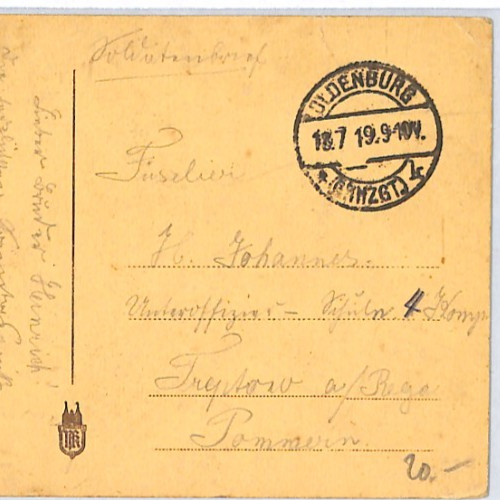 Soldatenbrief
OLDENBURG
18.7 19.9-10V.
* (GRHZGT.) 1
Füselier
H. Johannes
Unteroffizier- Schule 4 Komp
Treptow a/Rega
Pommern
20.-
Lieber Bruder Heinrich!